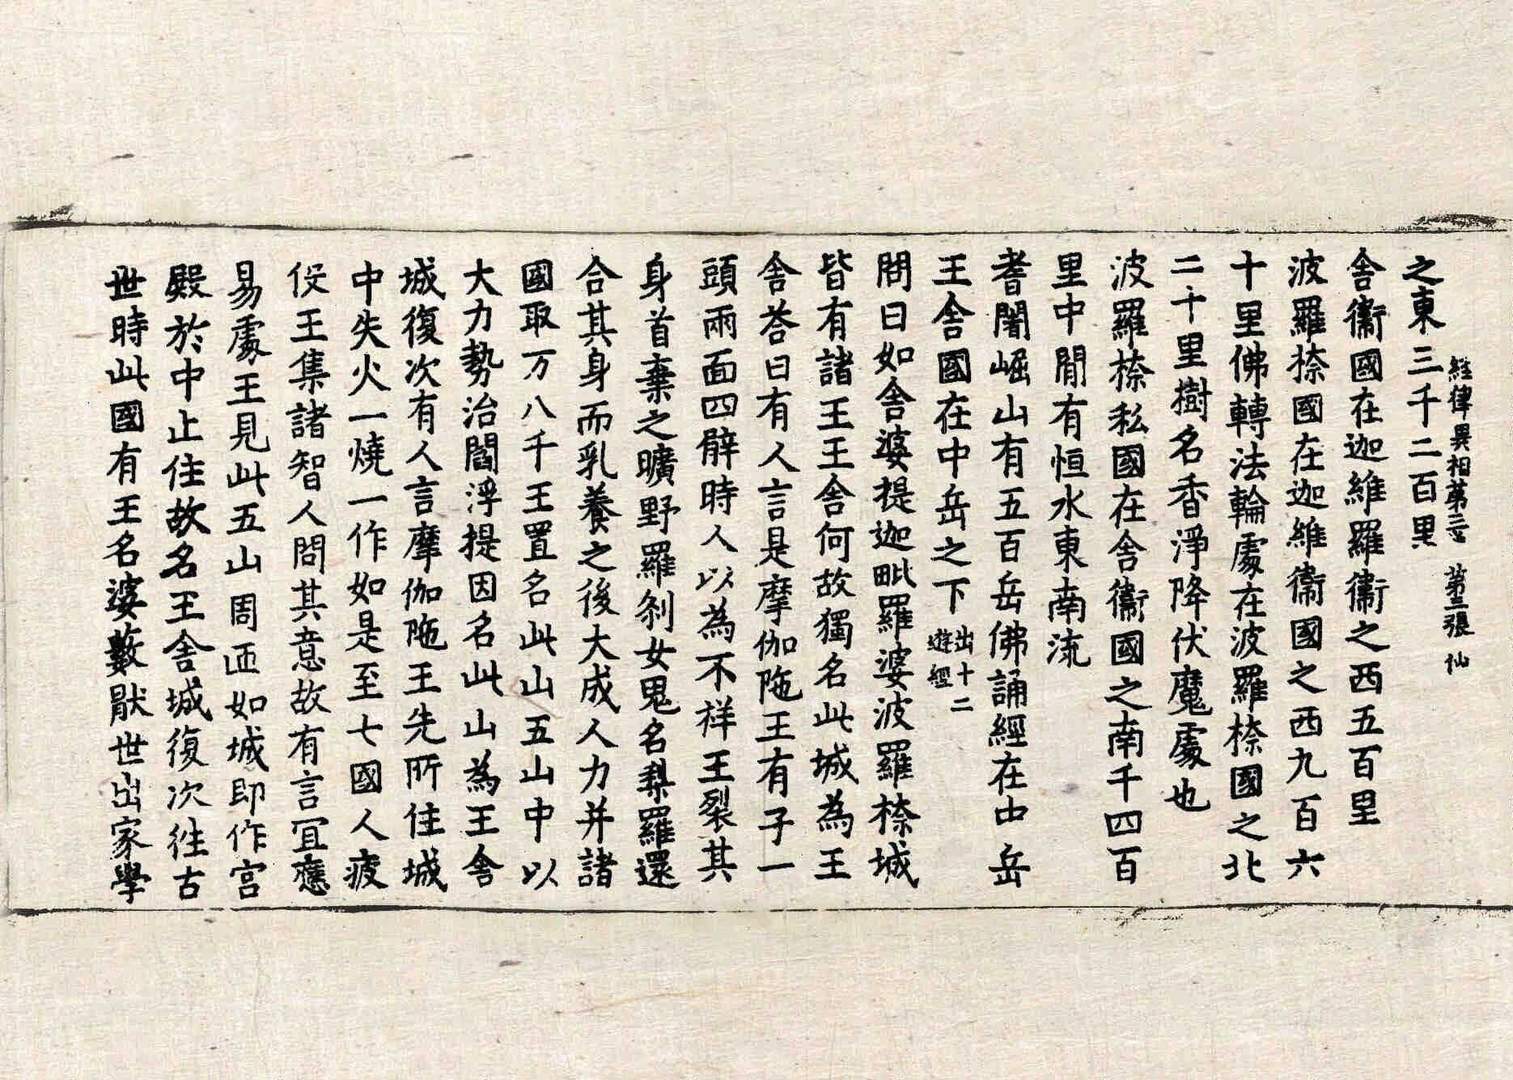 經律異相第三 第三張 仙
之東三千二百里
舍衞國在迦維羅衞之西五百里
波羅㮈國在迦維衞國之西九百六
十里佛轉法輪處在波羅㮈國之北
二千里樹名香淨降伏魔處也
波羅㮈私國在舍衞國之南千四百
里中間有恒水東南流
耆闍崛山有五百岳佛誦經在中岳
王舍國在中岳之下出十二遊經
問曰如舍婆提迦毗羅婆波羅㮈城
皆有諸王王舍何故獨名此城為王
舍荅曰有人言是摩伽陁王有子一
頭兩面四臂時人以為不祥王裂其
身首棄之曠野羅剎女鬼名梨羅還
合其身而乳養之後大成人力并諸
國取万八千王置名此山五山中以
大力勢治閻浮提因名此山為王舍
城復次有人言摩伽陁王先所住城
中失火一燒一作如是至七國人疲
伇王集諸智人問其意故有言冝應
易處王見此五山周匝如城即作宮
殿於中止住故名王舍城復次徃古
世時此國有王名婆藪猒世出家學